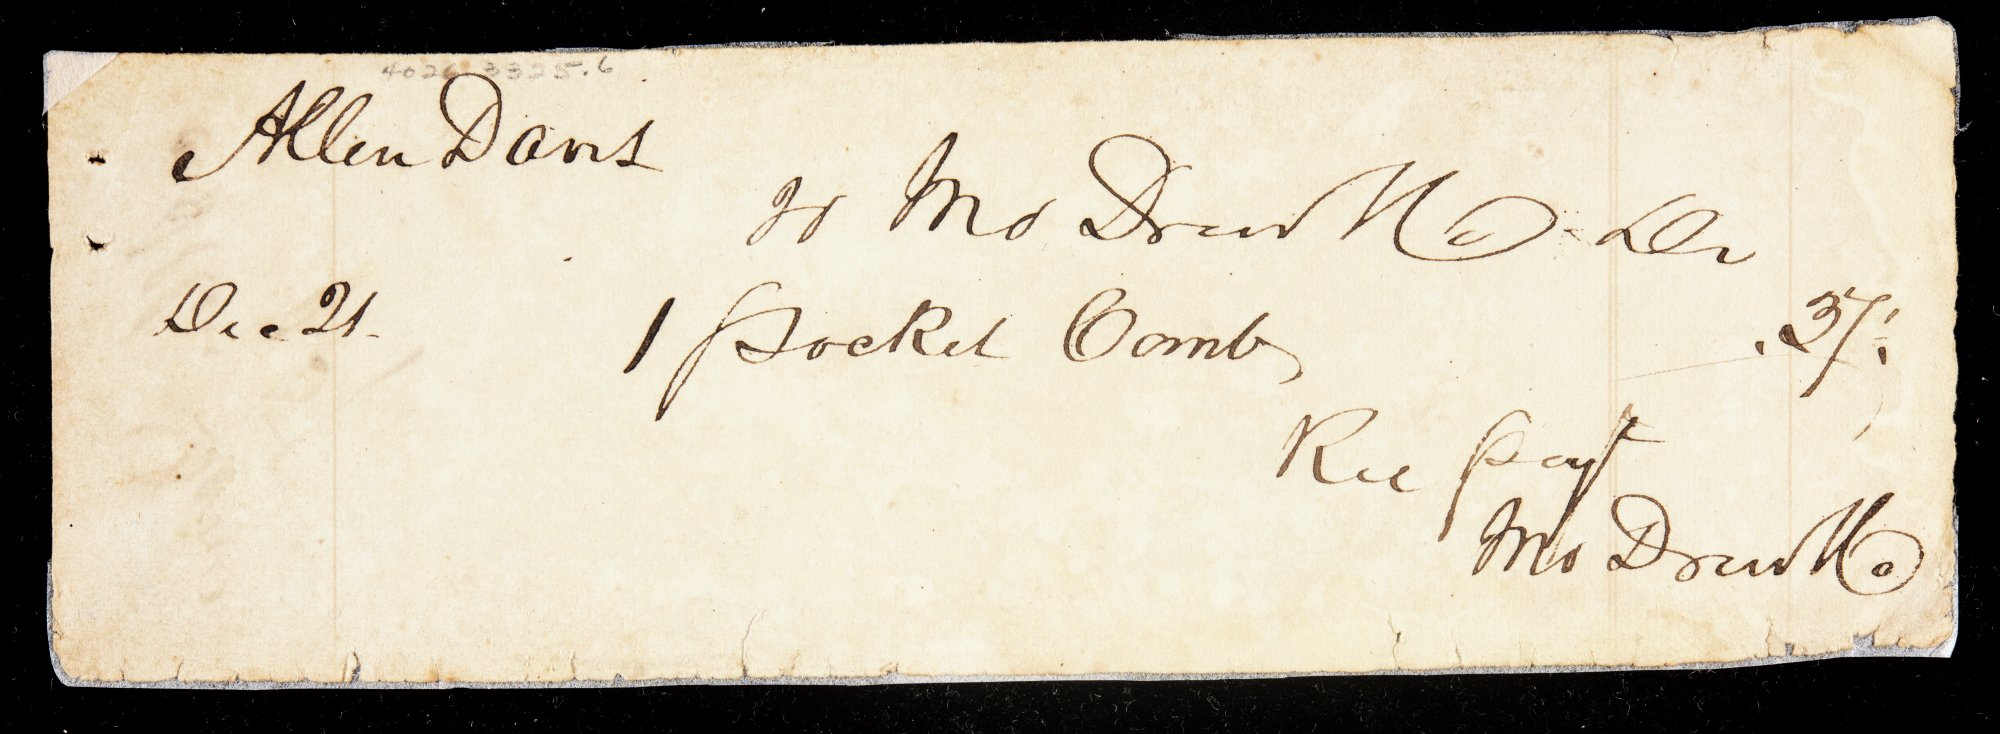 4026 3325.6
Allen Davis
To Mo Drew & Co Dr
Dec 21 1 Pocket Comb .37
Rec payt
Mo Drew & Co